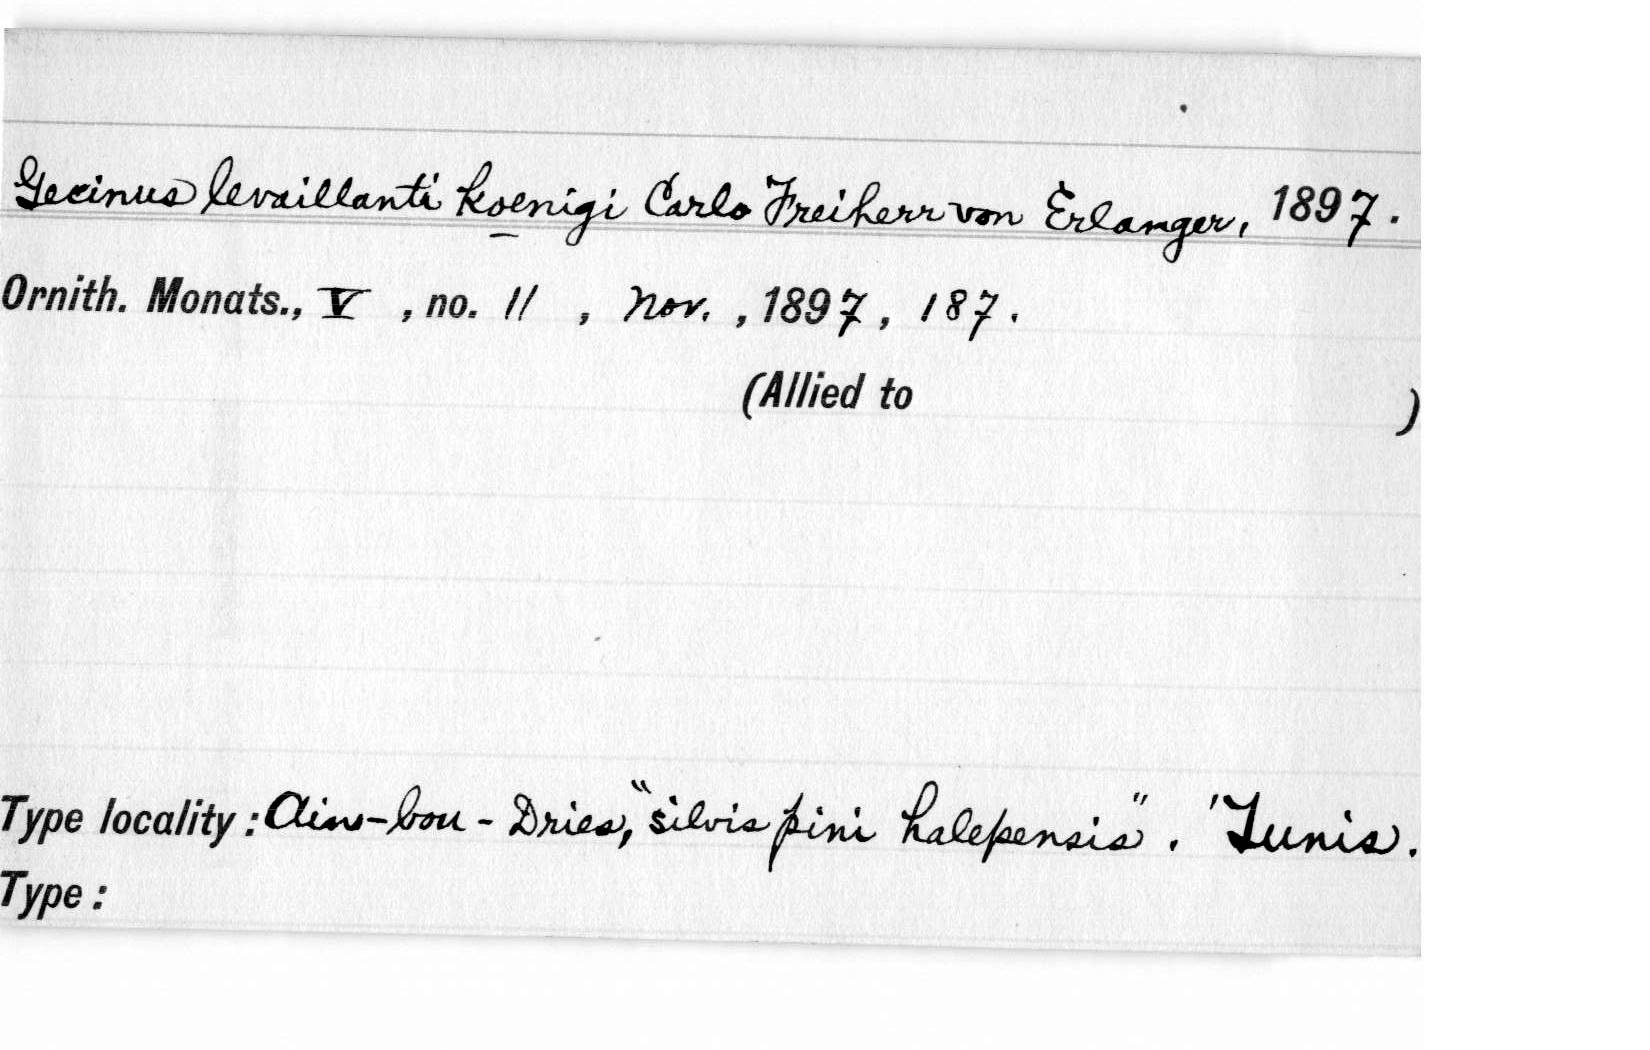 Gecinus levaillanti koenigi Carlo Freiherr von Erlanger, 1897.
Ornith. Monats., V , no. 11 , Nov. , 1897 , 187.
(Allied to )
Type locality : Ain-bou-Dries, "silvis pini halepensis". Tunis.
Type :